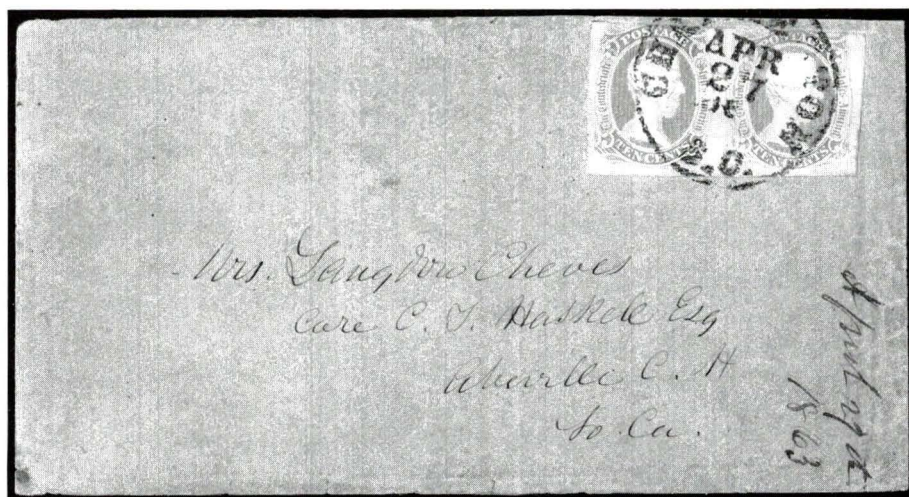 POSTAGE
TEN CENTS
TEN CENTS
APR
27
S.C.
Mrs. Langdon Cheves
Care C. T. Haskell Esq
Abeville C. H
So. Ca.
April 27th
1863